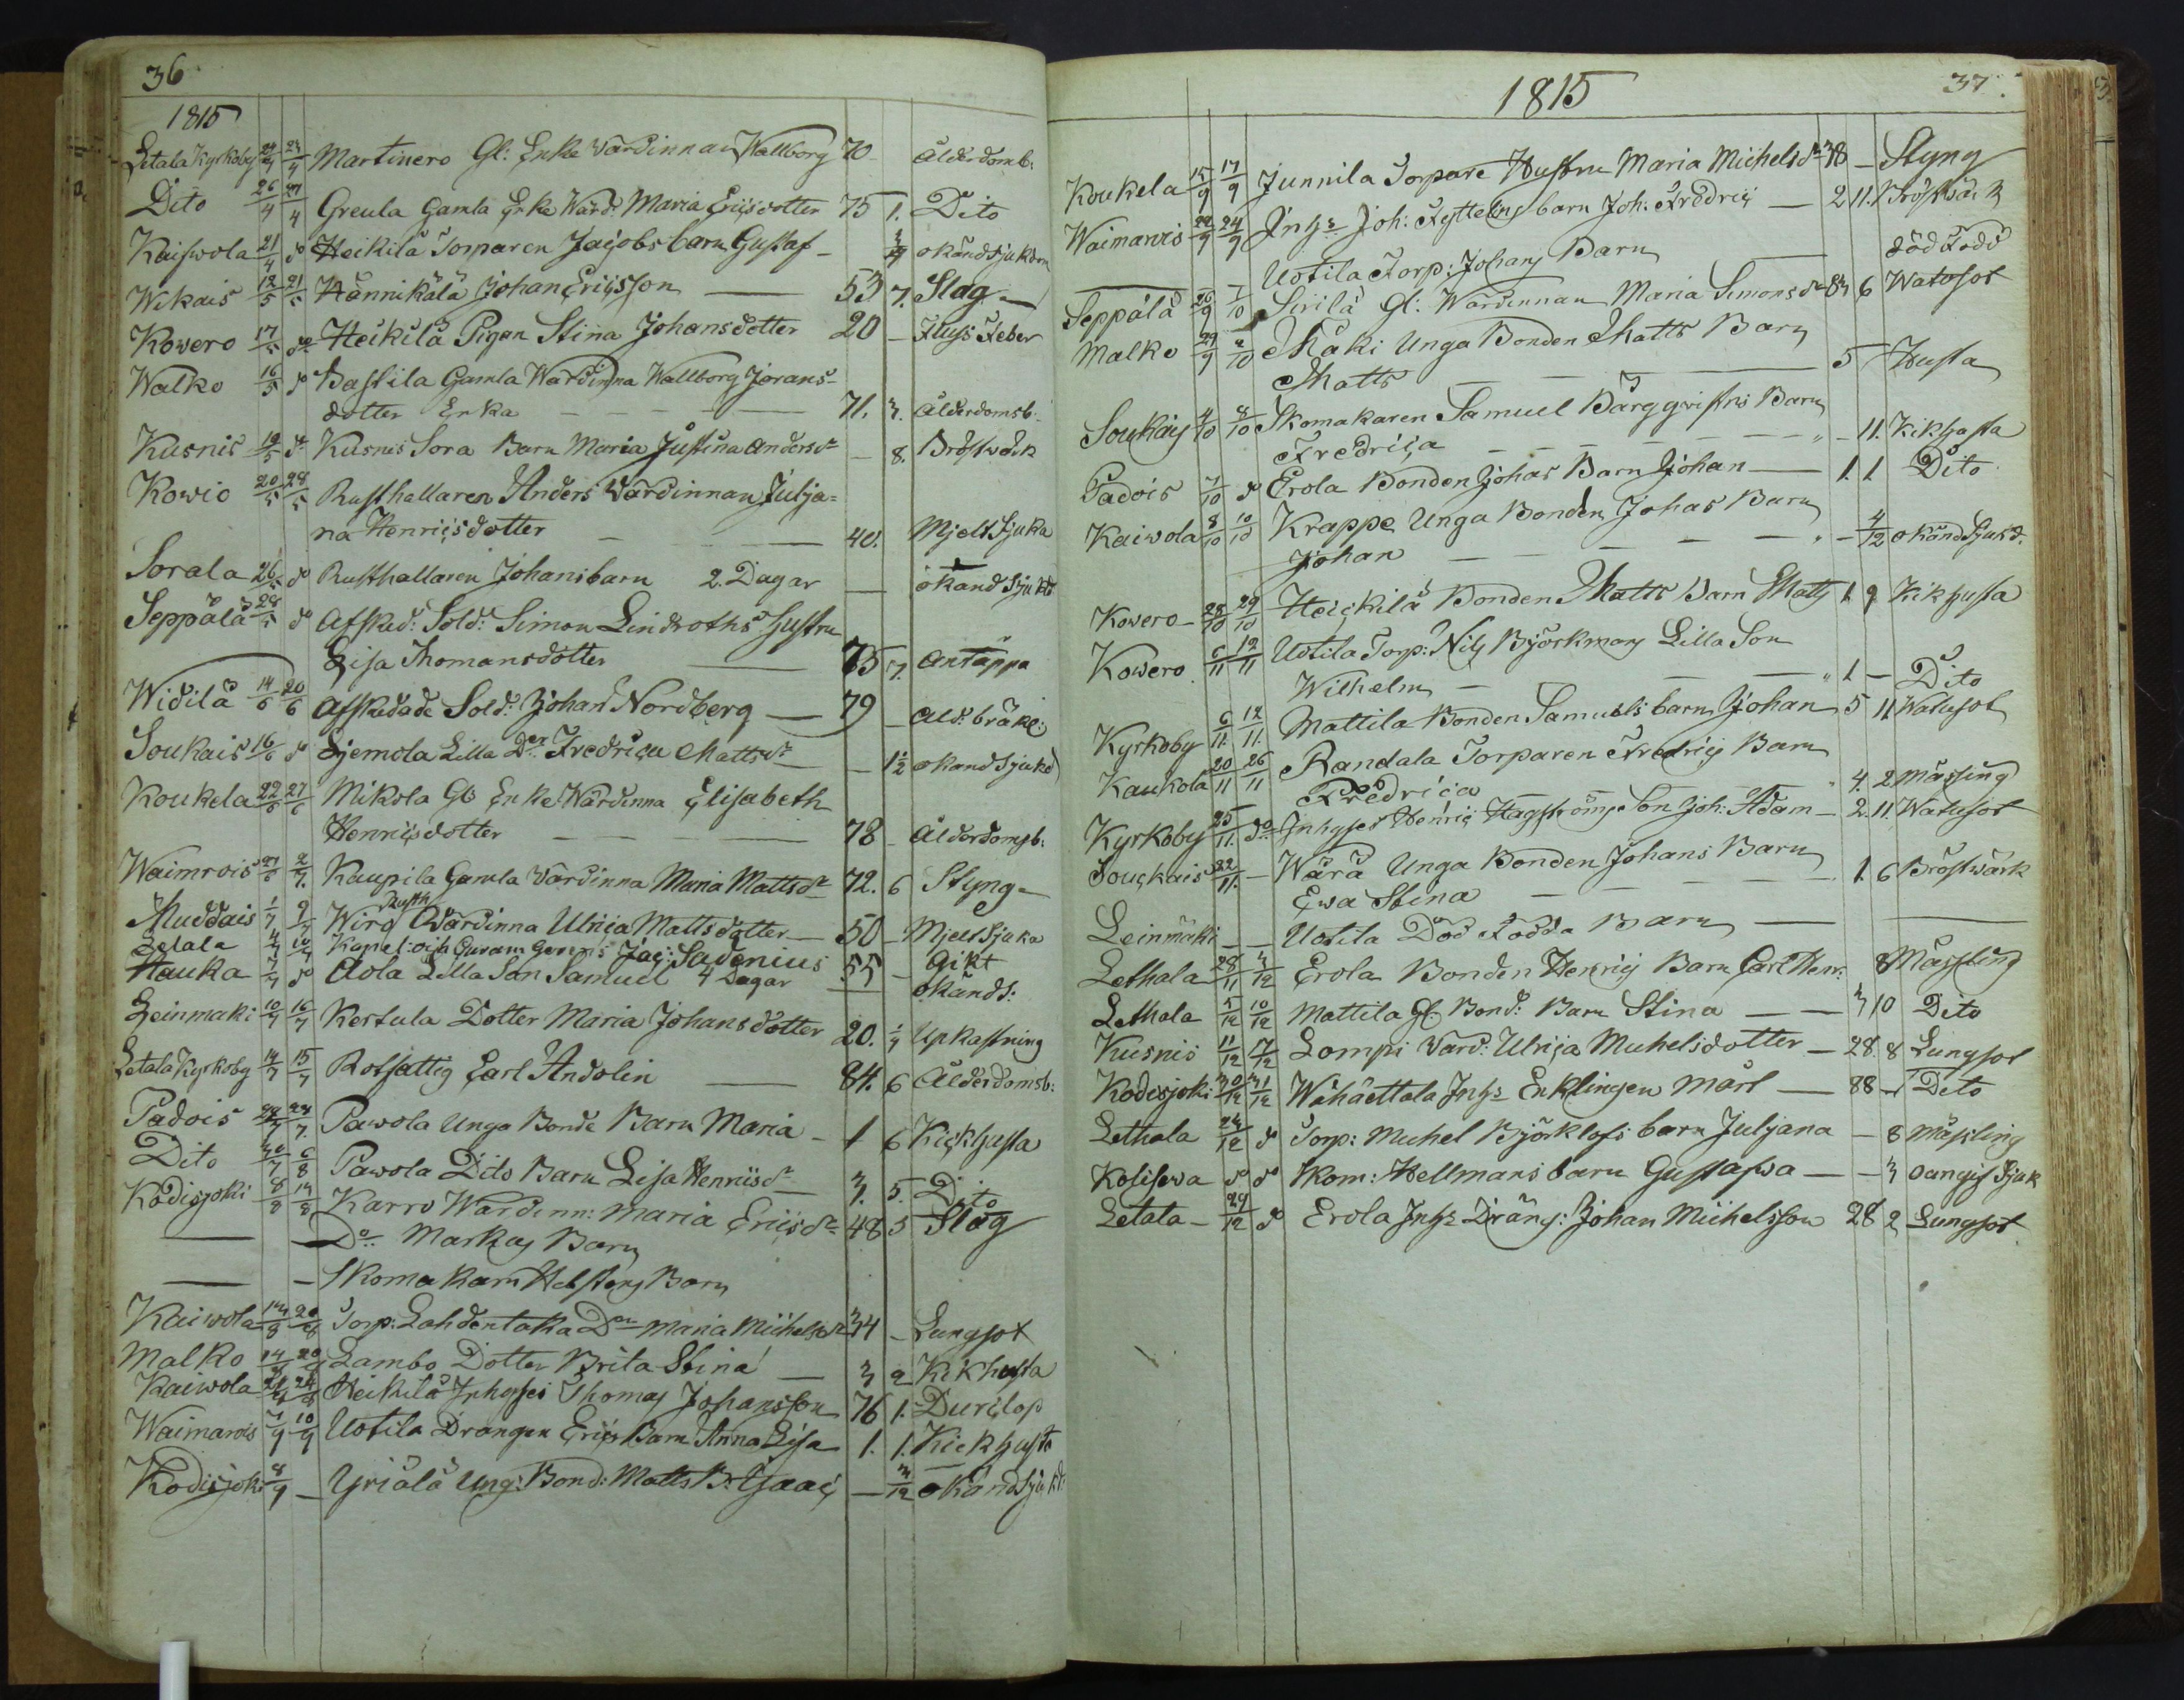 36
1815
Letala Kyrkoby 24/4 Martinero Gl: Enke Värdinnan Wallborg 70 - Ålderdomb:
Dito 26/4 Greula Gamla Enke Wärd: Maria Ericsdotter 75 1. Dito
Kaiswola 21/4 do Heikilä Torparen Jacobs barn Gustaf - okänd sjukdom
Wikais 12/5 21/5 Hännikälä Johan Ericsson — 53 7. Slag -
Kowero 17/5 do Heikilä Pigan Stina Johansdotter 20 - Fluss Feber
Walko 16/5 do Bastila Gamla Wärdinna Wallborg Jörans-
dotter Enka — 71. 3. Ålderdomsb.
Kusnis 19/5 do Kusnis Sora Barn Maria Justina Andersdr - 8. Bröstwärk
Kowio 20/5 28/5 Rusthallaren Anders Wärdinnan Julja=
na Henricsdotter — 40. Mjelt Sjuka
Sorala 26/5 do Rusthallaren Johans barn 2. Dagar — okänd Sjukd
Seppälä 28/5 do Afsked: Sold: Simon Lindroths Hustru
Lisa Thomansdotter — 75 7. Antäppa
Widilä 14/6 20/6 Afskedade Sold: Johan Nordberg — 79 - Åld: bräkl:
Soukais 16/6 do Sjemola Lilla Dr Fredrica Mattsdr — - 1/2 okänd Sjukd
Koukela 22/6 27/6 Mikola Gl Enke Wärdinna Elisabeth
Henricsdotter — 78 - Ålderdomsb:
Waimrois 27/6 2/7. Kaupila Gamla Värdinna Maria Mattsdr 72. 6 Styng -
Muddais 1/7 9/7 Wiro Rusth Wärdinna Ulrica Mattsdotter - 50 - Mjelt Sjuka
Letala 4/7 10/7 Kapel: och Curam Gerens Jac: Sadenius 55 - Gikt
Hauka 7/7 do Aola Lilla Son Samuel 4 Dagar — okänd S:
Leinmaki 10/7 16/7 Kertula Dotter Maria Johansdotter 20. Upkastning
Letala Kyrkoby 14/7 15/7 Rotfattig Carl Andolin — 84. 6 Ålderdomsb:
Padois 7. Pawola Unga Bonde Barn Maria - 1 6 Kickhusta
Dito 30/7 6/8 Pawola Dito Barn Lisa Henricsdr 3. 5. Dito
Kodisjoki 8/8 13/8 Karro Wärdinn: Maria Ericsdr 48 5 Slag
— Do Markus Barn
— - Skomakarn Barn
Kaiwola 13/8 20/8 Torp: Lahdentaka Dr Maria Michelsdr 34 - Lungsot
Malko 14/8 20/8 Lambo Dotter Brita Stina — 3 2 Kikhusta
Kaiwola Heikilä Inhyses Thomas Johansson 76 1. Durclop
Waimarois 7/9 10/9 Uotila Drängen Erics Barn Anna Lisa 1. 1. Kickhusta
Kodisjok: 8/9 - Yriälä Ung: Bond: Matts B: Isaac — 3/12 okänd Sjukd:
1815
37.
Koukela 15/9 17/9 Junnila Torpare Hustru Maria Michelsdr 38 - Styng
Waimarois 22/9 24/9 Inhs Joh: barn Joh: Fredric — 2 11. Bröstwärk
— - Uotila Torp: Johans Barn död Född
Seppälä 26/9 1/10 Sirilä Gl: Wärdinnan Maria Simonsdr 83 6 Watusot
Malko 29/9 2/10 Mäki Unga Bonden Matts Barn
Matts — 5 Husta
Soukais 4/10 8/10 Skomakaren Samuel Bärggvistns Barn
Fredrica — - 11. Kikhusta
Padois 7/10 do Erola Bonden Johas Barn Johan — 1. 1 Dito
Kaiwola 8/10 10/10 Krappe Unga Bonden Johas Barn
Johan — - 4/12 okänd Sjukd.
Kowero - 28/10 29/10 Heickilä Bonden Matts Barn Matts 1. 9 Kikhusta
Kowero 6/11 12/11 Uotila Torp: Nils Björkman Lilla Son
Wilhelm — 1 - Dito
Kyrkoby 6/11. 12/11. Mattila Bonden Samuels barn Johan 5 11 Watusot
Kaukola 20/11 26/11 Randala Torparen Fredrics Barn
Fredrica 4. 2 Mässling
Kyrkoby 25/11. do Inhyses Henric Hagströms Son Joh: Adam - 2. 11. Watusot
Souckais 22/11. - Wärä Unga Bonden Johans Barn
Ewa Stina — 1. 6 Bröstwärk
Leinmäki - - Uotila Död Födda Barn — —
Lethala 28/11 3/12 Erola Bonden Henrics Barn Carl Henr: 8 Mässling
Lethala 5/12 10/12 Mattila Gl: Bond: Barn Stina — 3 10 Dito
Kusnis 11/12 17/12 Lompi Wärd: Ulrica Michelsdotter - 28. 8 Lungsot
Kodisjoki 30/12 31/12 Wähäettala Inhs Enklingen Mårt — 88 - Dito
Lethala 24/12 do Torp: Michel Björklofs barn Juljana - 8 Mässling
Kolisewa do do Skom: Hellmans barn Gustafwa — - 3 oangif Sjuk
Letala - 29/12 do Erola Inhs Dräng: Johan Michelsson 28 2 Lungsot